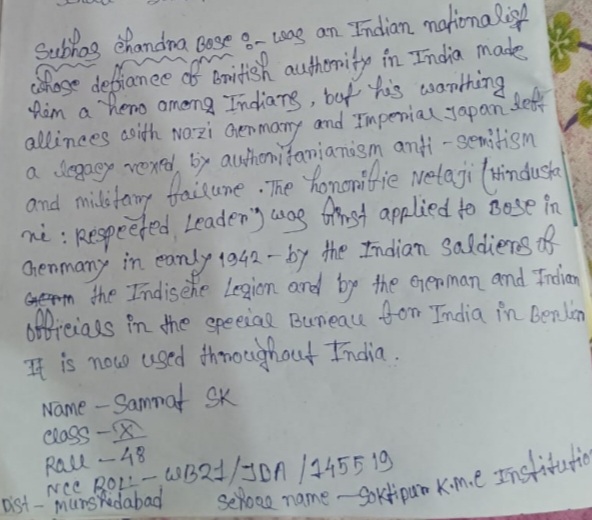 Subhas Chandra Bose :- was an Indian nationalist
whose defiance of British authority in India made
him a hero among Indians, but his warthing
allinces with Nazi Germany and Imperial Japan left
a legacy vexed by authoritarianism anti-semitism
and military failure. The honorific Netaji (Hindusta
ni : Respected Leader") was first applied to Bose in
Germany in early 1942 - by the Indian Saldiers of
the Indische Legion and by the German and Indian
officials in the special Bureau for India in Berlin
It is now used throughout India.
Name - Samrat SK
Class - X
Roll - 48
NCC ROLL - WB21/JDA/145519
Dist - Murshidabad School name - Soktipur K.M.C Institution